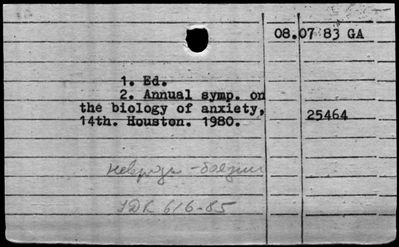 08.07 83 GA
1. Ed.
2. Annual symp. on
the biology of anxiety,
14th. Houston. 1980.
25464
616-85